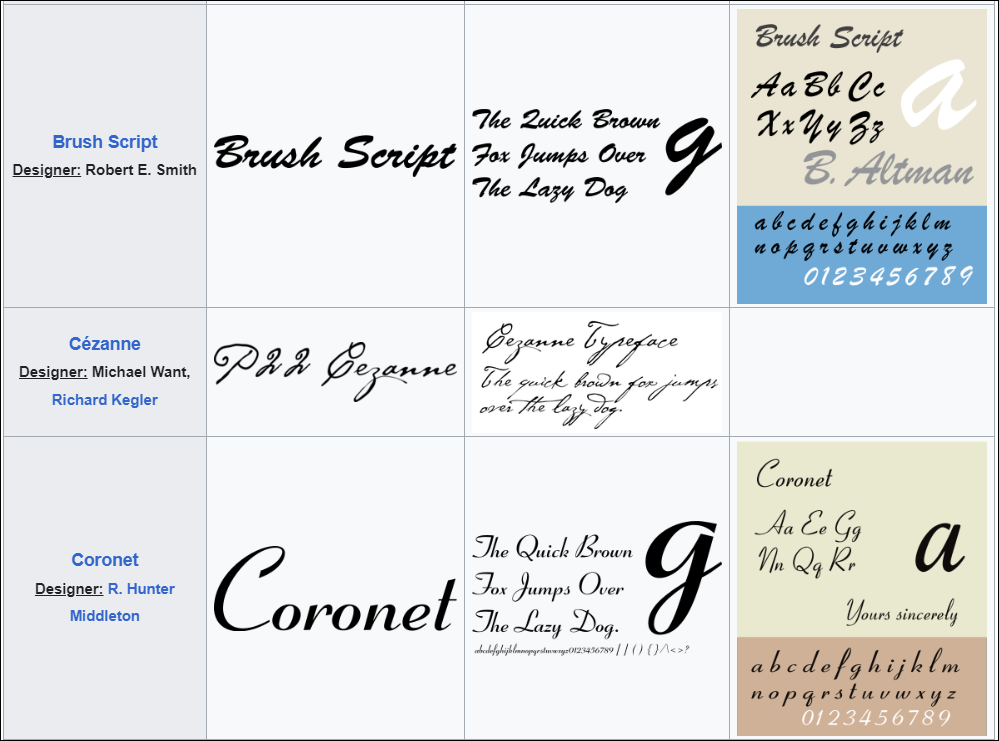 Brush Script
Designer: Robert E. Smith
Brush Script
The Quick Brown
Fox Jumps Over
The Lazy Dog
g
Brush Script
Aa Bb Cc
Xx Yy Zz
a
B. Altman
a b c d e f g h i j k l m
n o p q r s t u v w x y z
0 1 2 3 4 5 6 7 8 9
Cézanne
Designer: Michael Want,
Richard Kegler
P22 Cezanne
Cezanne Typeface
The quick brown fox jumps
over the lazy dog.
Coronet
Designer: R. Hunter
Middleton
Coronet
The Quick Brown
Fox Jumps Over
The Lazy Dog.
g
abcdefghijklmnopqrstuvwxyz0123456789 / | ( ) { } /\ < > ?
Coronet
Aa Ee Gg
Nn Qq Rr
a
Yours sincerely
a b c d e f g h i j k l m
n o p q r s t u v w x y z
0 1 2 3 4 5 6 7 8 9